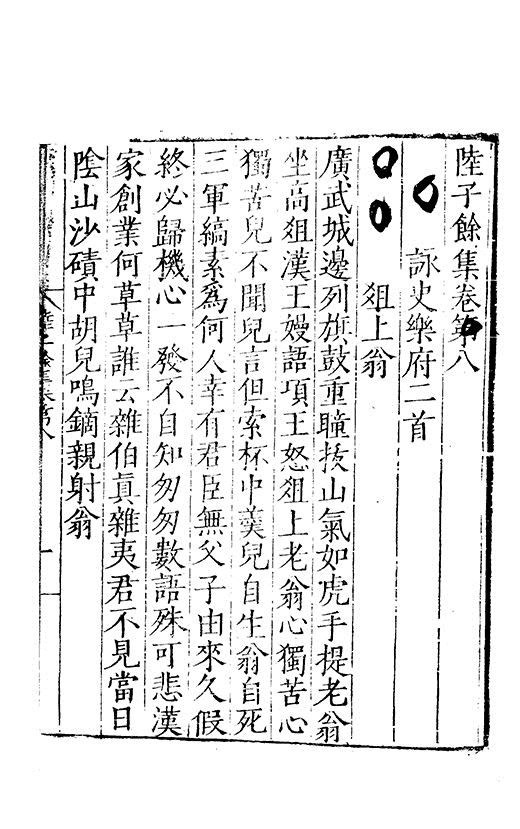 陸子餘集卷第八
詠史樂府二首
爼上翁
廣武城邊列旗鼓重瞳拔山氣如虎手提老翁
坐高爼漢王嫚語項王怒爼上老翁心獨苦心
獨苦兒不聞兒言但索杯中羹兒自生翁自死
三軍縞素爲何人幸有君臣無父子由來久假
終必歸機心一發不自知匆匆數語殊可悲漢
家創業何草草誰云雜伯眞雜夷君不見當日
陰山沙磧中胡兒鳴鏑親射翁